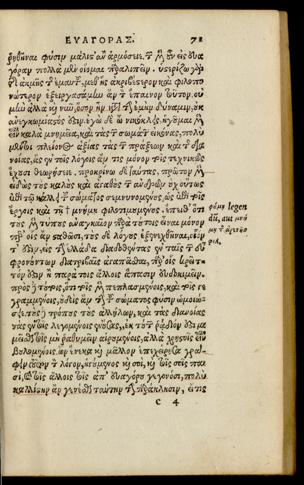 ΕΥΑΓΟΡΑΣ. 71
ῥηθῆναι φύσιν μάλιςτ' ἂν ἁρμόσειε. τῶν μὲν οὖν εἰς ἐυα
γόραν πολλὰ μὲν οἴομαι παραλιπεῖν. ὑςερίζω γὰρ
τῆς ἀκμῆς τῆς ἐμαυτοῦ. μεθ' ἧς ἀκριβέςερον καὶ φιλοπο
νώτερον ἐξειργασάμην ἂν τὸν ἔπαινον τοῦτον. οὐ
μὴν ἀλλὰ καὶ νῦν, ὅσον ἦν κατὰ τὴν ἐμὴν δύναμιν, οὐκ
ἀνεγκωμίαςός ὅςιν. ἐγὼ δὲ ὦ νικόκλεις, ἡγοῦμαι μὲν
εἶναι καλὰ μνημεῖα, καὶ τὰς τῶν σωμάτων εἰκόνας, πολὺ
μέντοι πλείονος ἀξίας τὰς τῶν πράξεων καὶ τῆς δια
νοίας, ἃς ἐν τοῖς λόγοις ἄν τις μόνον τοῖς τεχνικῶς
ἔχουσι θεωρήσειεν. προκρίνω δὲ ταύτας, πρῶτον μὲν
εἰδὼς τοὺς καλοὺς καὶ ἀγαθοὺς τῶν ἀνδρῶν οὐχ οὕτως
ἐπὶ τῷ κάλλει τοῦ σώματος σεμνυνομένους, ὡς ἐπὶ τοῖς
ἔργοις καὶ τῇ γνώμῃ φιλοτιμουμένους. ἔπειθ' ὅτι
τοὺς μὲν τύπους ἀναγκαῖον παρὰ τούτοις εἶναι μόνον
παρ' οἷς ἂν ςαθῶσι, τοὺς δὲ λόγους ἐξενεχθῆναι, οἷόν
τ' ὅςιν, εἰς τὴν ἑλλάδα διαδοθέντας ἐν ταῖς τῶν εὖ
φρονούντων διατριβαῖς ἀγαπᾶσθαι, παρ' οἷς κρεῖτ
τόν ὅςιν ἢ παρὰ τοῖς ἄλλοις ἅπασιν ἐυδοκιμεῖν.
πρὸς δὲ τούτοις, ὅτι τοῖς μὲν πεπλασμένοις, καὶ τοῖς γε
γραμμένοις, οὐδεὶς ἂν τὴν τοῦ σώματος φύσιν ὁμοιώσει
ε. τοὺς δὲ τρόπους τοὺς ἀλλήλων, καὶ τὰς διανοίας
τὰς ἐν τοῖς λεγομένοις ἐνούσας, ῥᾴδιόν ὅςι μι
μεῖσθαι τοῖς μὴ ῥαθυμεῖν αἱρουμένοις, ἀλλὰ χρηςοῖς εἶναι
βουλομένοις. ὧν ἕνεκα καὶ μᾶλλον ἐπεχείρησα γρά
φειν τοῦτον τὸν λόγον, ἡγούμενος καὶ σοὶ, καὶ τοῖς σοῖς παι
σὶ, καὶ τοῖς ἄλλοις τοῖς ἀπ' ἐυαγόρου γεγονόσι, πολὺ
καλλίςην ἂν γενέσθαι ταύτην τὴν παράκλησιν, εἴ τις
C 4